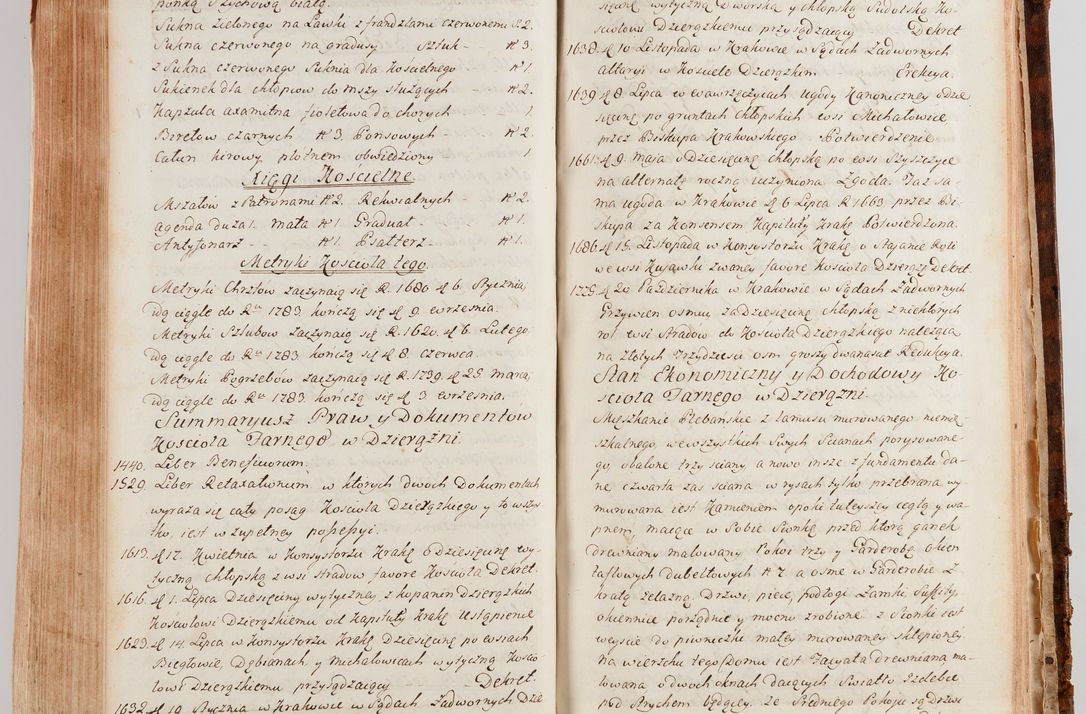 ponką Szychową białą.
Sukna zielonego na Ławki z frandzlami czerwonemi № 2.
Sukna czerwonego na gradusy Sztuk - № 3.
z Sukna czerwonego Suknia dla Kościelnego - № 1.
Sukienek dla chłopców do mszy służących - № 2.
Kapzula axamitna fioletowa do chorych 1.
Biretow czarnych № 3. Ponsowych - № 2.
Całun kirowy płótnem obwiedziony 1.
Xięgi Kościelne
Mszałow z Patronami № 2. Rekwialnych - № 2.
agenda duża 1. mała № 1. Graduał - № 1.
Antyfonarz - - № 1. Psałterz - № 1.
Metryki Kościoła tego.
Metryki Chrztow zaczynaią się R. 1680 d. 6. Stycznia,
idą ciągle do Ru 1783. kończą się d. 9. września.
Metryki Szlubow zaczynaią się R. 1620. d. 6. Lutego
idą ciągle do Ru 1783 kończą się d. 8. czerwca.
Metryki Pogrzebow zaczynaią się R. 1739. d. 25 marca,
idą ciągle do Ru 1783. kończą się d. 3 września.
Summaryusz Praw y Dokumentow
Kościoła Farnego w Dzierążni.
1440. Liber Beneficiorum.
1529. Liber Retaxationum w ktorych dwoch Dokumentach
wyraża się cały posag Kościoła Dzierązkiego y to wszys-
tko, iest w zupełney possessyi.
1613. d. 17. Kwietnia w Konsystorzu Krakg o Dziesięcinę wy-
tyczną chłopską z wsi Stradow favore Kościoła Dekret.
1616. d. 1. Lipca Dziesięciny wytyczney z łupanin Dzierązkich
Kościołowi Dzierązkiemu od Kapituły Krakg Ustąpienie
1623. d. 14. Lipca w Konsystorzu Krakg Dziesięcinę po wsiach
Biegłowie, Dębianach, y Michałowicach wytyczną Kościo-
łowi Dzierązkiemu przysądzaiący - Dekret.
1632. d. 19. Stycznia w Krakowie w Sądach Zadwornych Dzie
sięcinę wytyczną Dworską y chłopską Sudolską Ko-
ściołowi Dzierązkiemu przysądzaiący Dekret
1638. d. 10. Listopada w Krakowie w Sądach Zadwornych
altaryi w Kościele Dzierązkim Erekcya.
1639. d. 8. Lipca w Wawrzęczycach Ugody Kanoniczney o Dzie
sięcinę po gruntach chłopskich wsi Michałowice
przez Biskupa Krakowskiego Potwierdzenie
1661. d. 9. maja o Dziesięcinę chłopską po wsi Szyszczyce
na alternatę roczną uczyniona Zgoda. Taż sa-
ma ugoda w Krakowie d. 6 Lipca R. 1663 przez Bi-
skupa za Konsensem Kapituły Krakg Potwierdzona.
1686. d. 15. Listopada w Konsystorzu Krakg o Stajanie Roli
we wsi Kujawki zwaney favore Kościoła Dzierąz: Dekret.
1775. d. 20. Października w Krakowie w Sądach Zadwornych
Grzywien osmiu za Dziesięcinę chłopską z niektorych
rol wsi Stradow do Kościoła Dzierązkiego należącą
na złotych Trzydzieści osm groszy dwanaście Redukcya.
Stan Ekonomiczny y Dochodowy Ko-
ścioła Farnego w Dzierązni.
Mieszkanie Plebańskie z lamusu murowanego niemie-
szkalnego, we wszystkich Swych Scianach porysowane-
go, obalone trzy ściany, a nowo insze z fundamentu da-
ne czwarta zaś sciana w rysach tylko przebrana wy-
murowana iest Kamieniem opoki tuteyszey cegłą y wa-
pnem, maiące w Sobie Sionkę przed ktorą ganek
drewniany malowany Pokoi trzy y Garderobę, okien
taflowych dubeltowych № 7. a osme w Garderobie z
kratą żelazną, Drzwi, piece, podłogi Zamki, Suffity,
okiennice porządnie y mocno zrobione z Sionki iest
weyście do piwniczki małey murowaney sklepioney
na wierzchu tego Domu iest Facyata drewniana ma-
lowana o dwoch oknach daiących Swiatło Izdebce
pod Strychem będącey. Ze Sredniego Pokoju są Drzwi